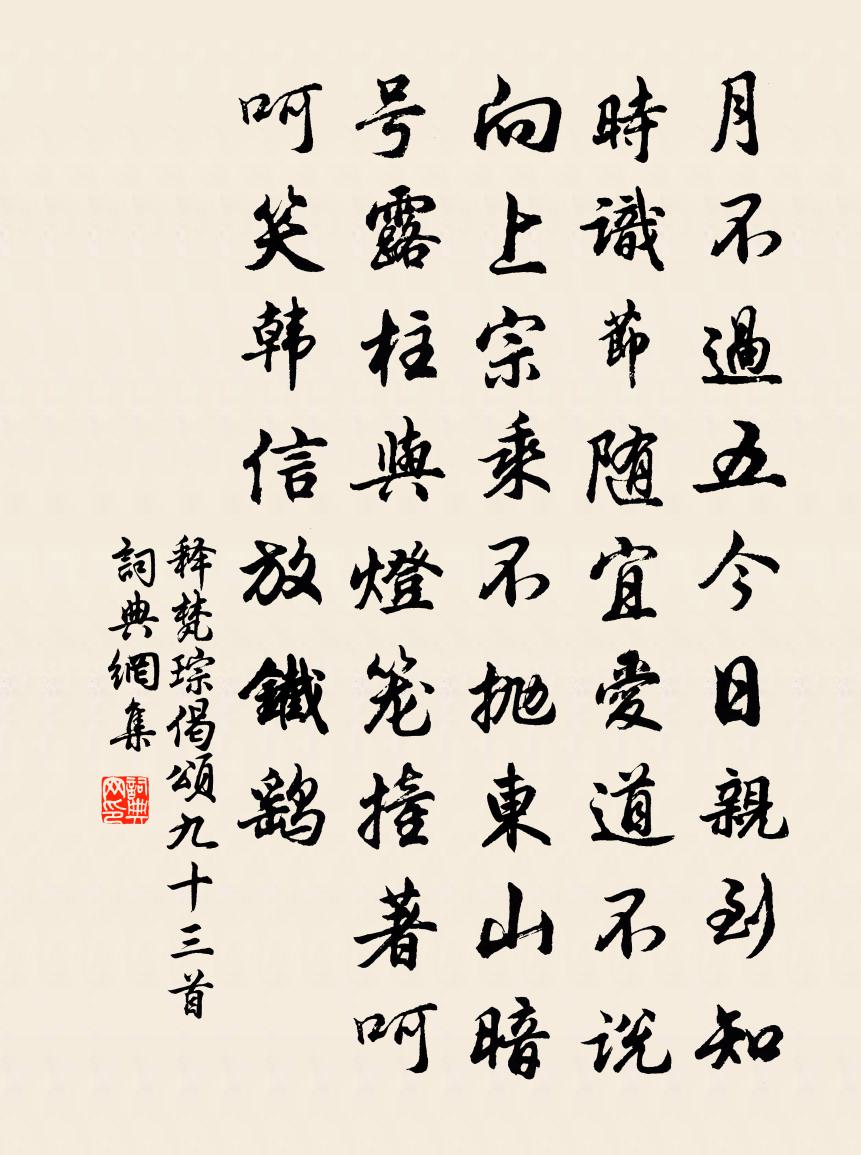 月不過五今日親到知
時識節随宜愛道不说
向上宗乘不抛東山暗
号露柱與燈笼撞著呵
呵笑韩信放鐵鹞
释梵琮偈頌九十三首
詞典網集
詞典网印